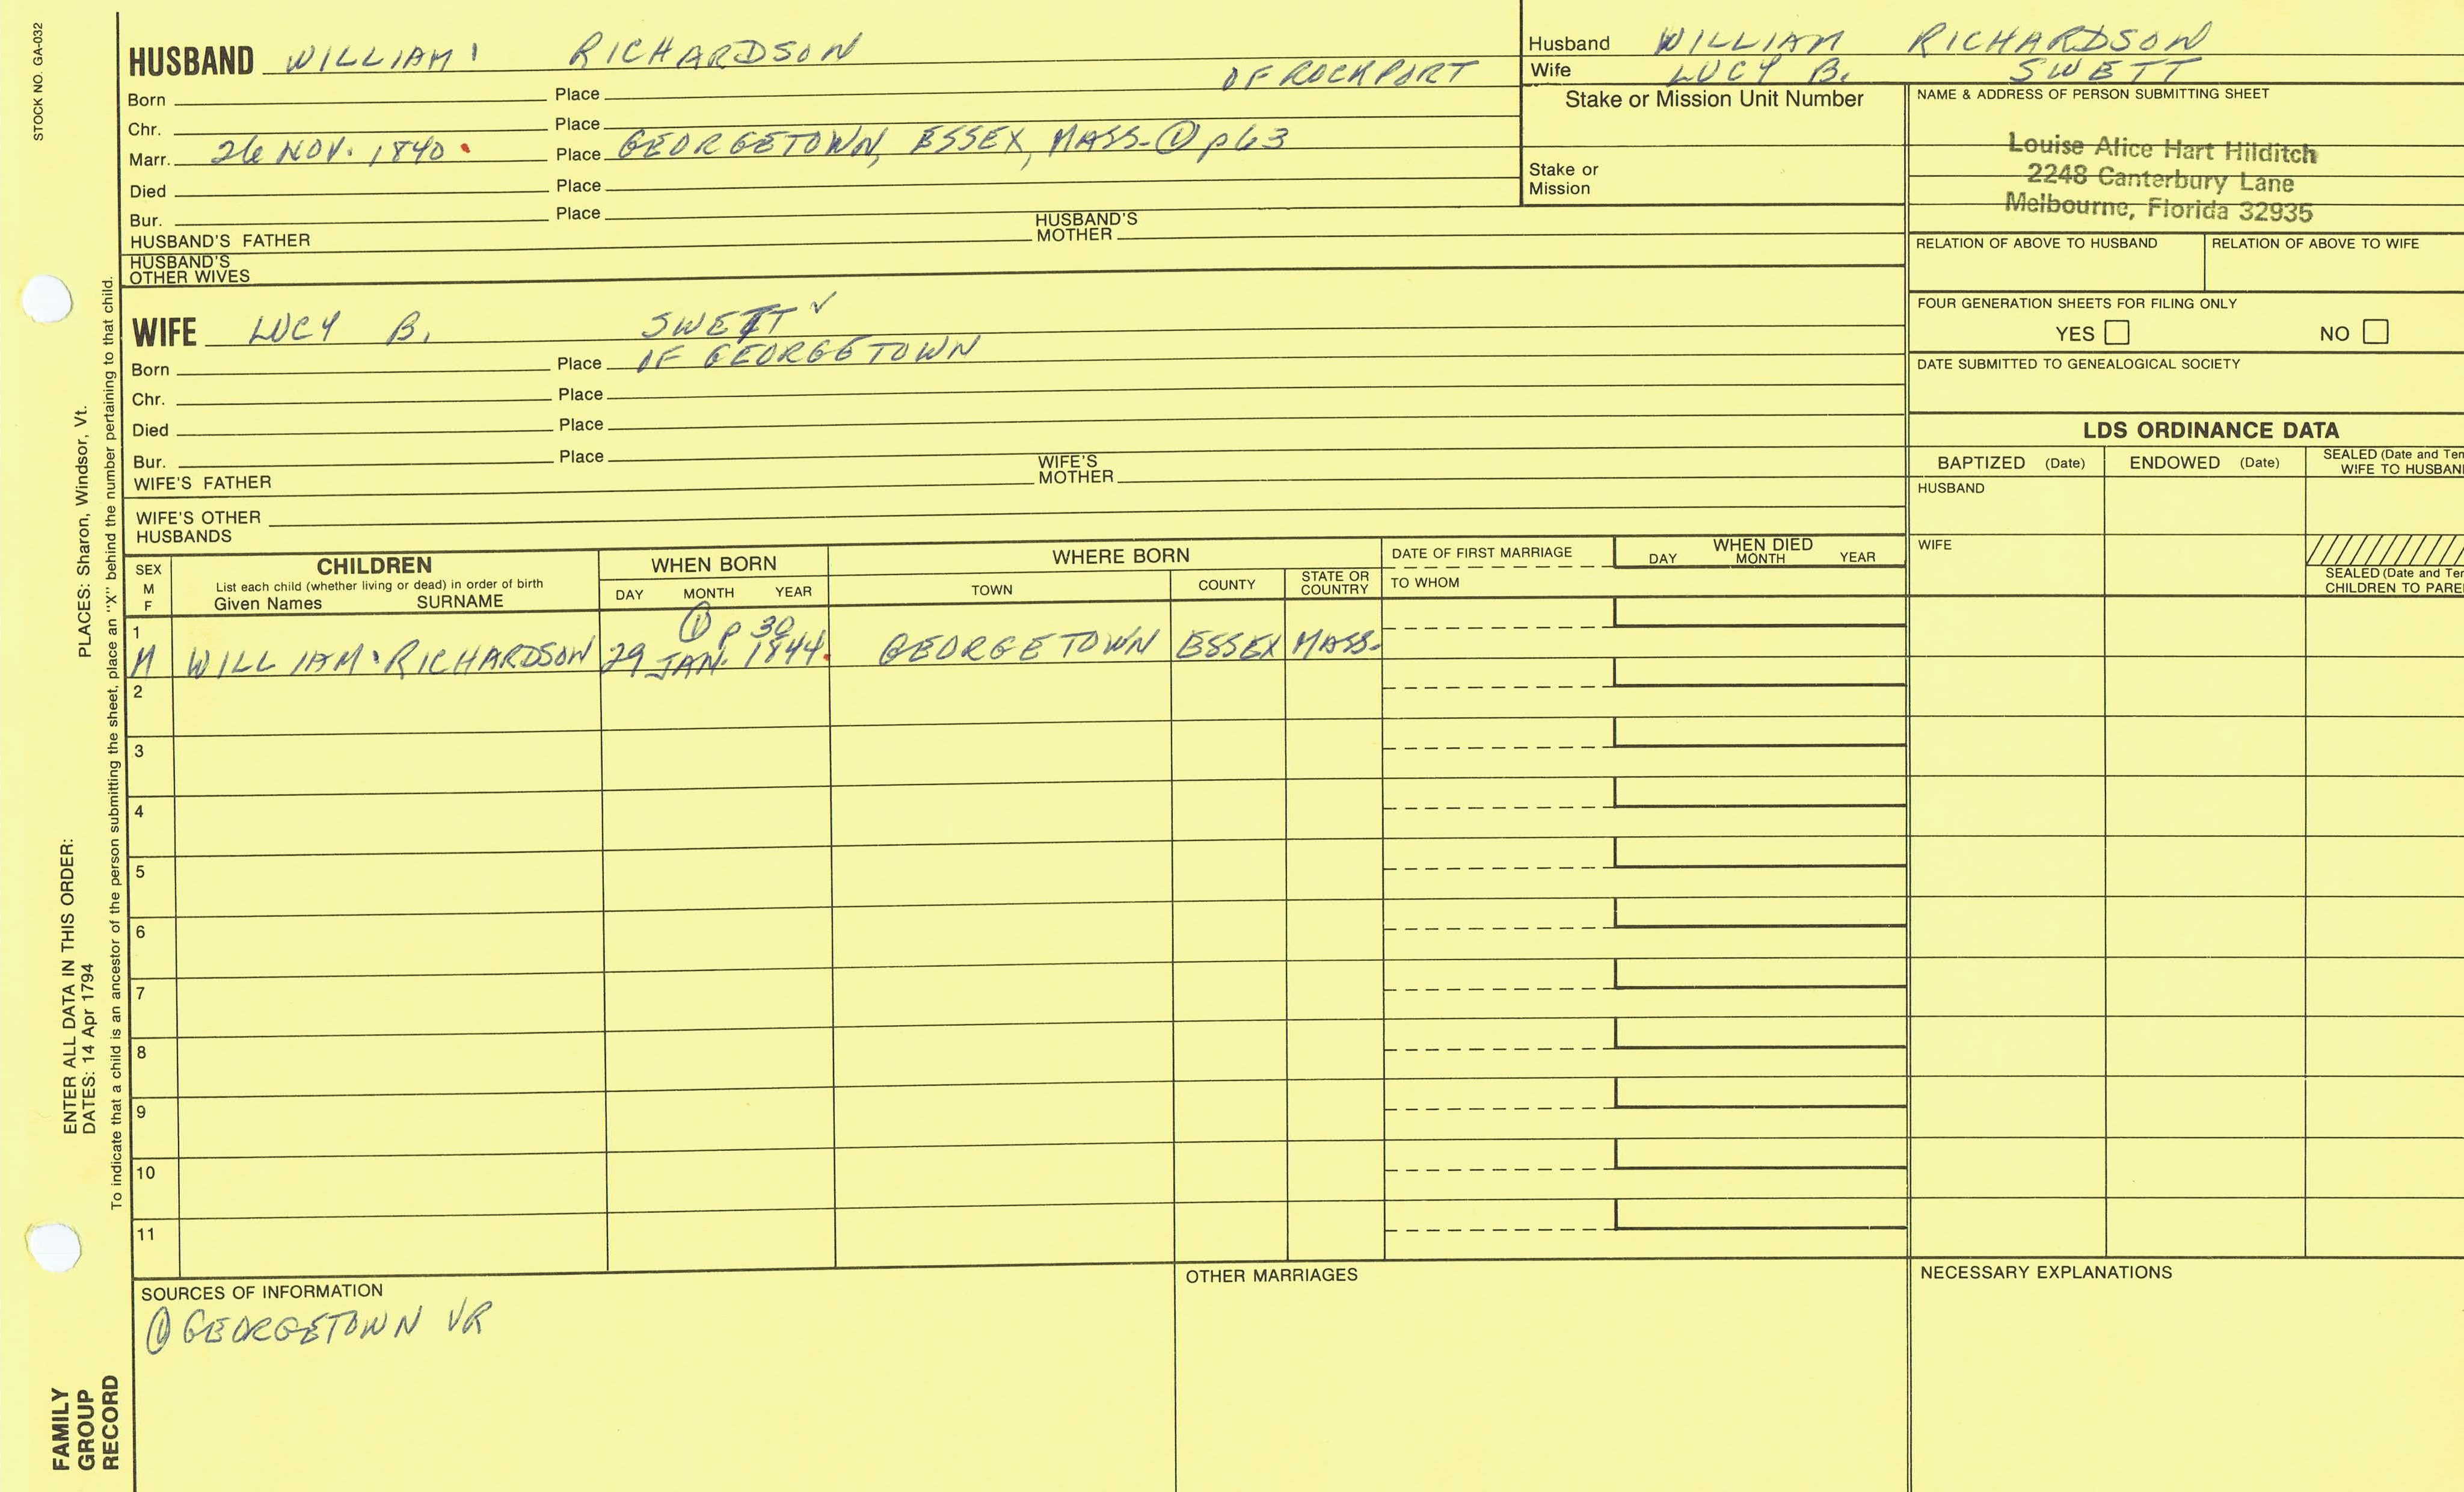 STOCK NO. GA-032
HUSBAND WILLIAM RICHARDSON
OF ROCKPORT
Born Place
Chr. Place
Marr. 26 NOV. 1840 Place GEORGETOWN, ESSEX, MASS. ① p 63
Died Place
Bur. Place
HUSBAND'S FATHER HUSBAND'S MOTHER
HUSBAND'S OTHER WIVES
Husband WILLIAM RICHARDSON
Wife LUCY B. SWETT
Stake or Mission Unit Number
Stake or Mission
NAME & ADDRESS OF PERSON SUBMITTING SHEET
Louise Alice Hart Hilditch
2248 Canterbury Lane
Melbourne, Florida 32935
RELATION OF ABOVE TO HUSBAND RELATION OF ABOVE TO WIFE
FOUR GENERATION SHEETS FOR FILING ONLY
YES NO
DATE SUBMITTED TO GENEALOGICAL SOCIETY
WIFE LUCY B. SWETT ✓
Born Place OF GEORGETOWN
Chr. Place
Died Place
Bur. Place
WIFE'S FATHER WIFE'S MOTHER
WIFE'S OTHER HUSBANDS
LDS ORDINANCE DATA
BAPTIZED (Date) ENDOWED (Date) SEALED (Date and Tem
WIFE TO HUSBAN
HUSBAND
WIFE
SEALED (Date and Tem
CHILDREN TO PARE
SEX M F
CHILDREN
List each child (whether living or dead) in order of birth
Given Names SURNAME
WHEN BORN
DAY MONTH YEAR
WHERE BORN
TOWN COUNTY STATE OR COUNTRY
DATE OF FIRST MARRIAGE
TO WHOM
WHEN DIED
DAY MONTH YEAR
① p 30
1 M WILLIAM RICHARDSON 29 JAN. 1844 GEORGETOWN ESSEX MASS.
2
3
4
5
6
7
8
9
10
11
SOURCES OF INFORMATION
① GEORGETOWN VR
OTHER MARRIAGES
NECESSARY EXPLANATIONS
ENTER ALL DATA IN THIS ORDER:
DATES: 14 Apr 1794 PLACES: Sharon, Windsor, Vt.
To indicate that a child is an ancestor of the person submitting the sheet, place an "X" behind the number pertaining to that child.
FAMILY
GROUP
RECORD